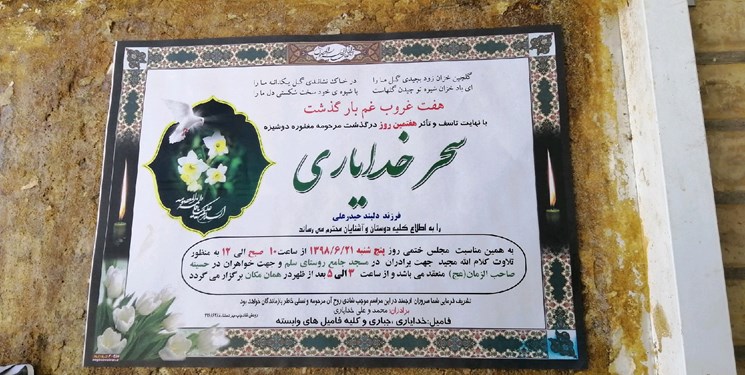 گلچین خزان زود بچیدی گل ما را
در خاک نشاندی گل یکدانه ما را
ای باد خزان شیوه تو چیدن گلهاست
با شیوه ی خود سخت شکستی دل ما را
هفت غروب غم بار گذشت
با نهایت تاسف و تأثر هفتمین روز درگذشت مرحومه مغفوره دوشیزه
سحر خدایاری
فرزند دلبند حیدرعلی
را به اطلاع کلیه دوستان و آشنایان محترم می رساند
به همین مناسبت مجلس ختمی روز پنج شنبه ۱۳۹۸/۶/۲۱ از ساعت ۱۰ صبح الی ۱۲ به منظور
تلاوت کلام الله مجید جهت برادران در مسجد جامع روستای سلم و جهت خواهران در حسینه
صاحب الزمان(عج) منعقد می باشد و از ساعت ۳ الی ۵ بعد از ظهر در همان مکان برگزار می گردد
تشریف فرمایی شما سروران ارجمند در این مراسم موجب شادی روح آن مرحومه و تسلی خاطر بازماندگان خواهد بود
برادران: محمد و علی خدایاری
فامیل: خدایاری، جباری و کلیه فامیل های وابسته